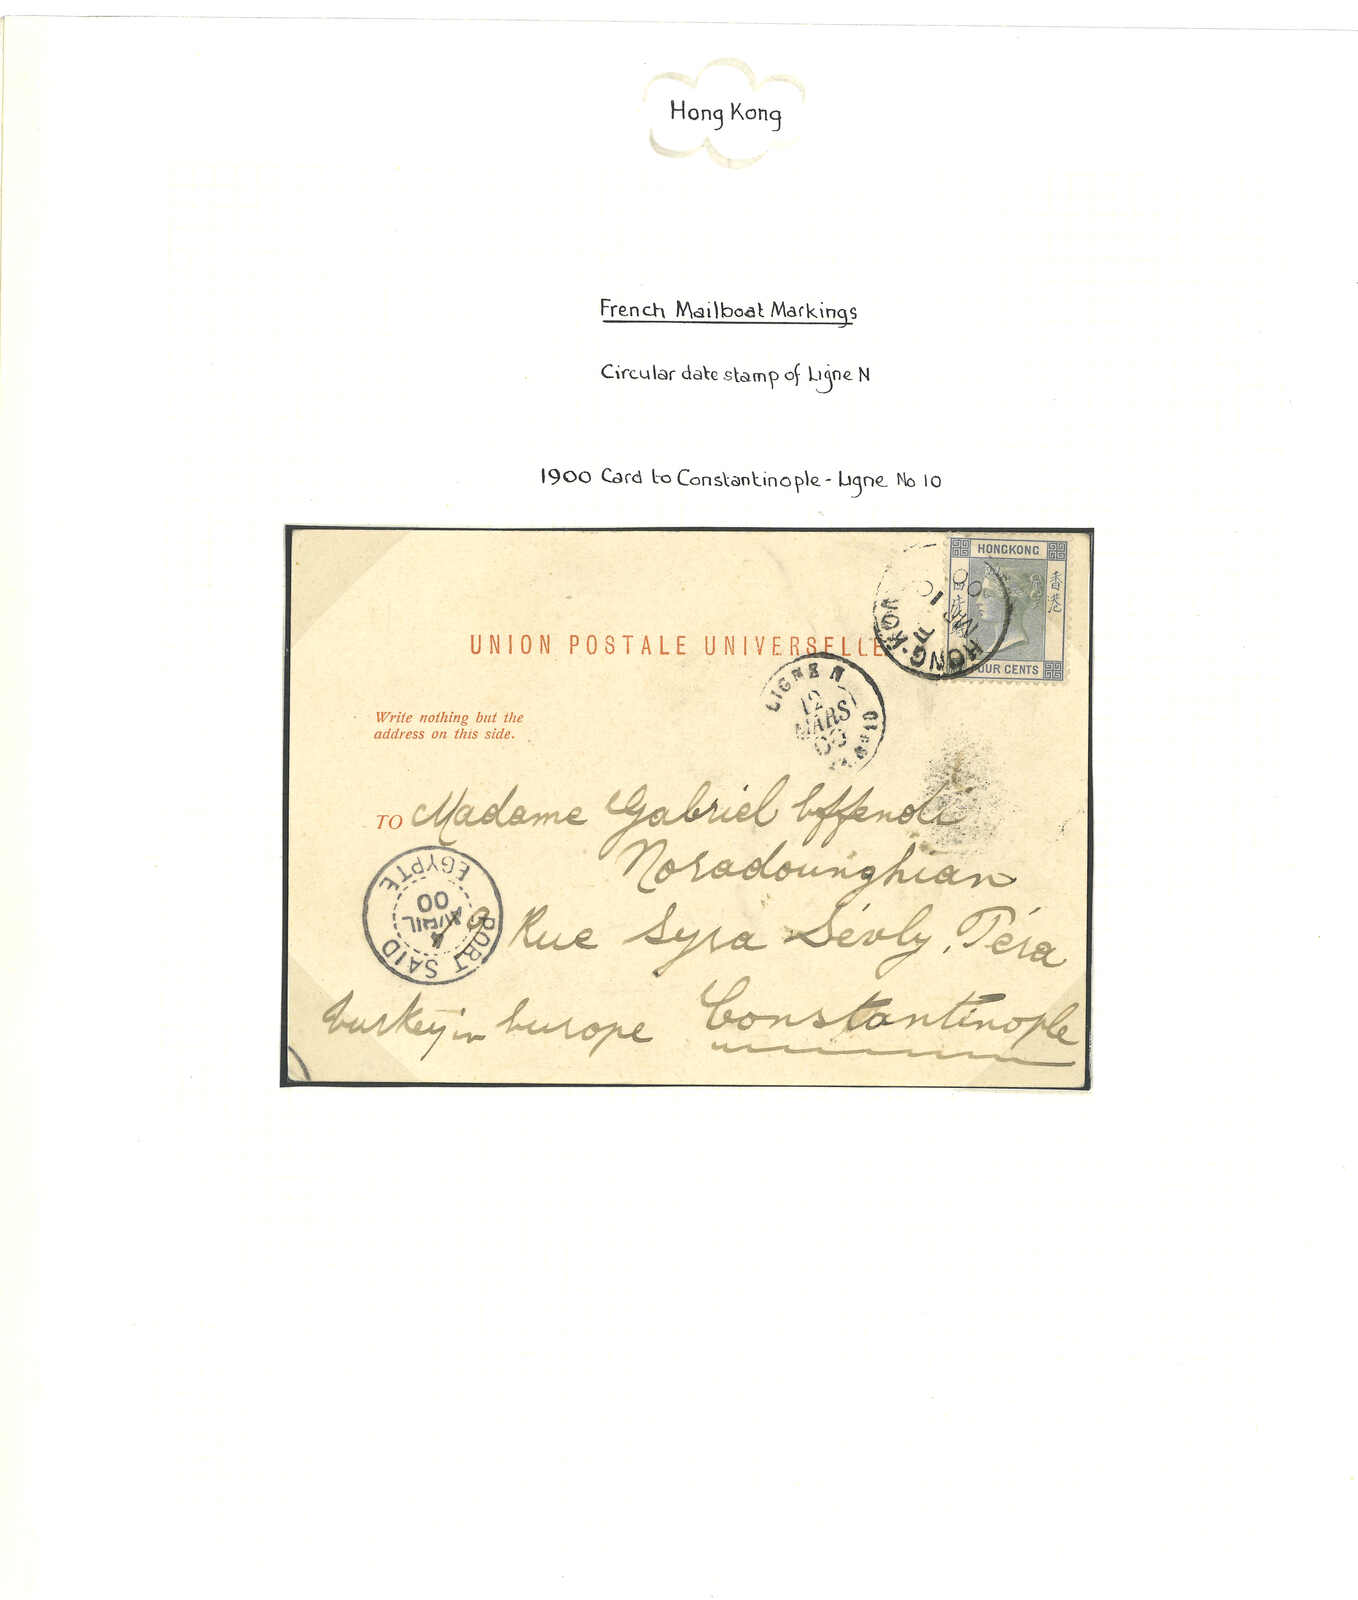 Hong Kong
French Mailboat Markings
Circular date stamp of Ligne N
1900 Card to Constantinople - Ligne No 10
HONGKONG
香港
FOUR CENTS
HONG-KONG
E
MR 10
00
UNION POSTALE UNIVERSELLE
LIGNE N
12
MARS
00
Write nothing but the
address on this side.
TO Madame Gabriel Effendi
Noradounghian
9 Rue Syra Sévly, Péra
Turkey in Europe Constantinople
PORT SAID
4
AVRIL
00
EGYPTE